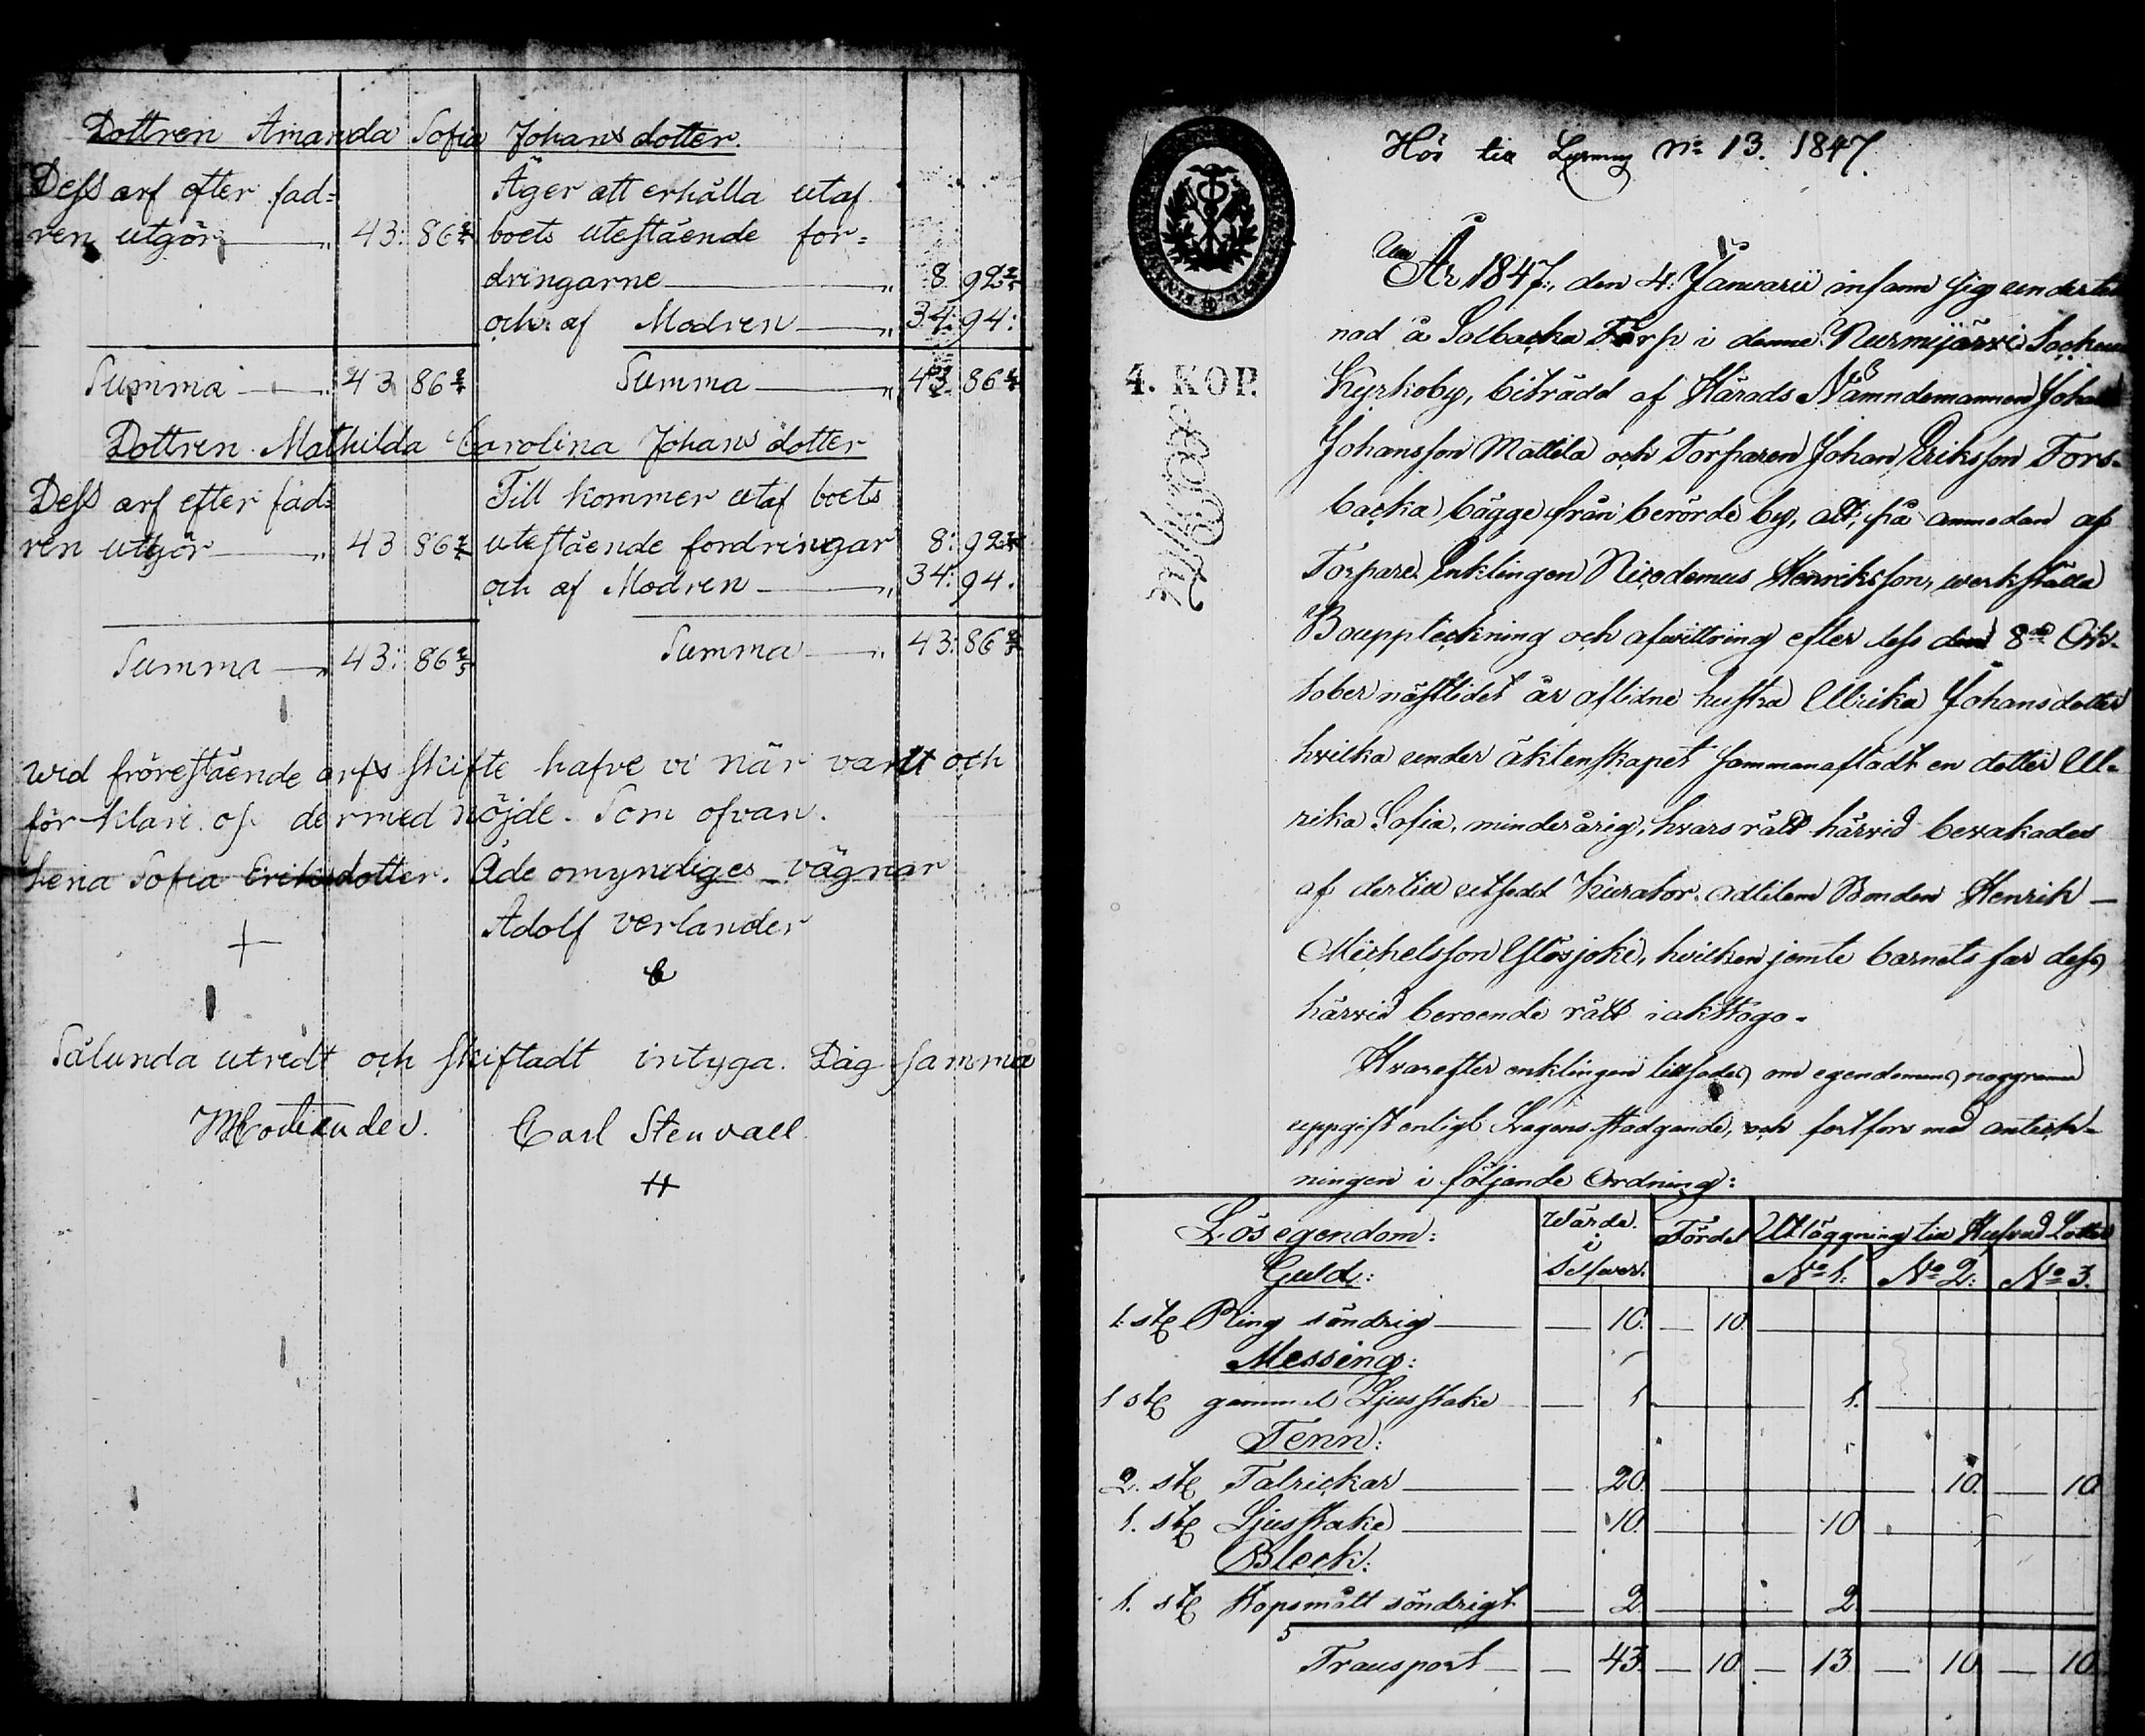 Dottren Amanda Sofia Johansdotter.
Dess arf efter fad=
ren utgör 43: 86 2/5
Äger att erhålla utaf
boets utestående for=
dringarne 8. 92 2/5
och af Modren 34: 94:
Summa 43 86 2/5 Summa 43. 86 2/5
Dottren Mathilda Carolina Johansdotter
Dess arf efter fad=
ren utgör 43 86 2/5
Till kommer utaf boets
utestående fordringar 8: 92 2/5
och af Modren 34: 94.
Summa 43: 86 2/5 Summa 43: 86 2/5
Wid fröreståënde arfs skifte hafve vi när varit och
för klare os dermed nöjde. Som ofvan.
Lena Sofia Eriksdotter. Å de omyndiges vägnar
Adolf Verlander
Sålunda utredt och skiftadt intyga. Dag samma
Carl Stenvall
Hör till No 13. 1847.
År 1847, den 4: Januarii infann sig underteck
nad å Solbacka Torp i denne Nurmijärvi Socken
4. KOP.
Kyrkoby, biträdd af Härads Nämndemannen Johan
Johansson Mattila och Torparen Johan Eriksson Fors-
backa bägge från berörde by, att, på anmodan af
Torpare Enklingen Nicodemus Henriksson, werkställa
Bouppteckning och afvittring efter dess den 8de Ok-
tober nästlidet år aflidne hustru Ulrika Johansdotter
hvilka under äktenskapet sammanaflat en dotter Ul-
rika Sofia, minderårig, hvars rätt härvid bevakades
af dertill utsedd Kurator adlitem Bonden Henrik
Michelsson Ylösjoki, hvilken jemte barnets far dess
härvid beroende rätt iakttogo.
Hvarefter enklingen tillsades om egendomens noggranna
uppgift enligt Lagens stadgande, och fortfors med anteck-
ningen i följande Ordning:
Lösegendom: Wärde i Silfver. Fördel Utläggning till Hufvud Lotter
Guld: No 1: No 2: No 3.
1. st Ring söndrig 10. 10.
Messing:
1 st gammel Ljusstake 1 1.
Tenn:
2. st Talrickar 20. 10. 10
1. st Ljusstake 10. 10
Bleck:
1. st Kopsmått söndrigt 2. 2.
Transport 43. 10. 13 10 10